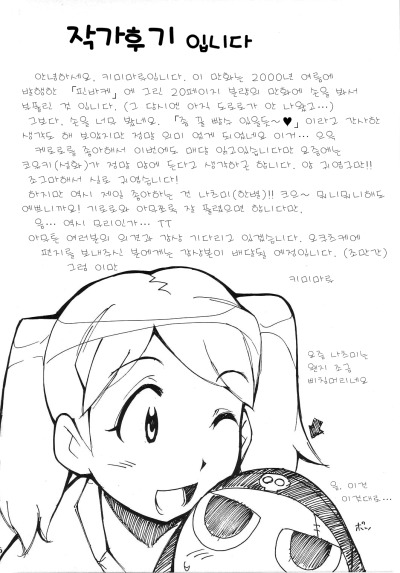 작가후기 입니다
안녕하세요. 키미마루입니다. 이 만화는 2000년 여름에
발행한 「핀바케」에 그린 20페이지 분량의 만화에 손을 봐서
부풀린 건 입니다. (그 당시엔 아직 도로로가 안 나왔고…)
그보다. 손을 너무 봤네요. 「좀 끝 빡스 있을듯~♥」이라고 간사한
생각도 해 보았지만 정말 의미 없게 되었네요 이거… 요즘
케로로를 좋아해서 이번에도 매다 있고있습니다만 요즘에는
코유키(성화)가 정말 맘에 든다고 생각하곤 합니다. 야 귀엽군만!!
조그마해서 실로 귀엽습니다!
하지만 역시 제일 좋아하는 건 나츠미(한별)!! 크으~ 뭐니뭐니해도
예쁘니까요! 기로로와 아무쪼록 잘 풀렸으면 합니다만.
음… 역시 무리인가… TT
아무튼 여러분의 의견과 감상 기다리고 있겠습니다. 오크츠케에
편지를 보내주신 분에게는 감상본이 배달될 예정입니다. (조만간)
그럼 이만
키미마루
요즘 나츠미는
왠지 조금
삐침머리네요
음. 이건
이건대로…
ボッ